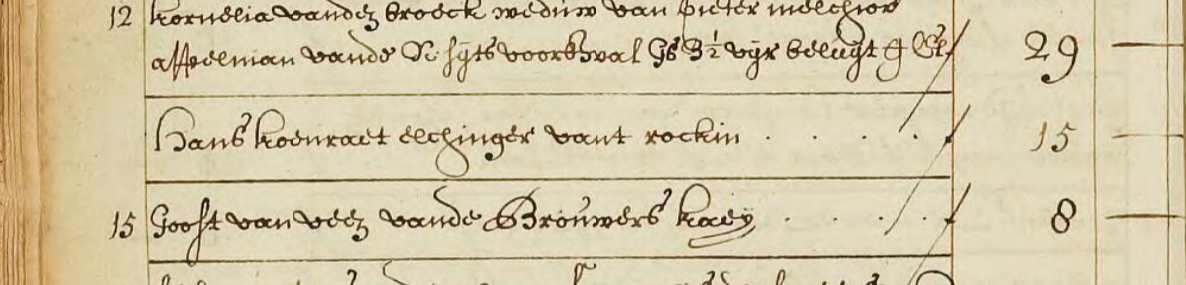 12 kornelia vanden broeck weduw van pieter melchior
appelman vande N: sijts voorb: wal GS 3½ uyr beluyt 29 —
Hans koenraet elchinger vant rockin . . . . . 15 —
15 Joost van veen vande Brouwers kaey . . . . 8 —